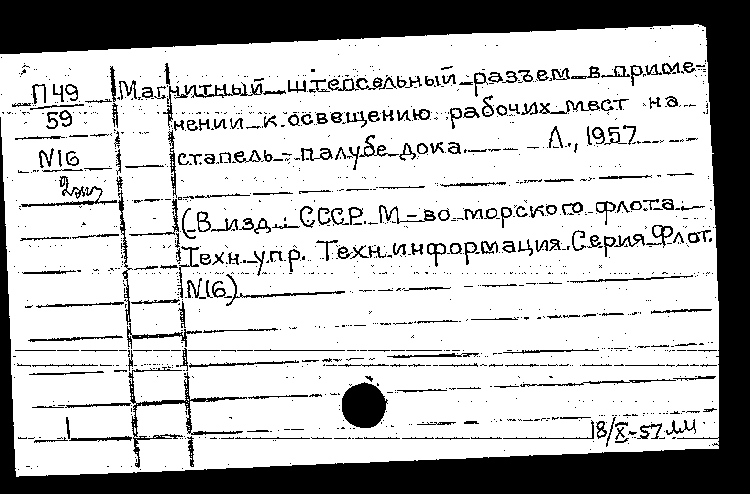 П49
59
N16
2экз
Магнитный штепсельный разъем в приме-
нении к освещению рабочих мест на
стапель-палубе дока. Л., 1957
(В изд.: СССР. М-во морского флота.
Техн. упр. Техн. информация. Серия Флот.
N16)
1
18/X-57